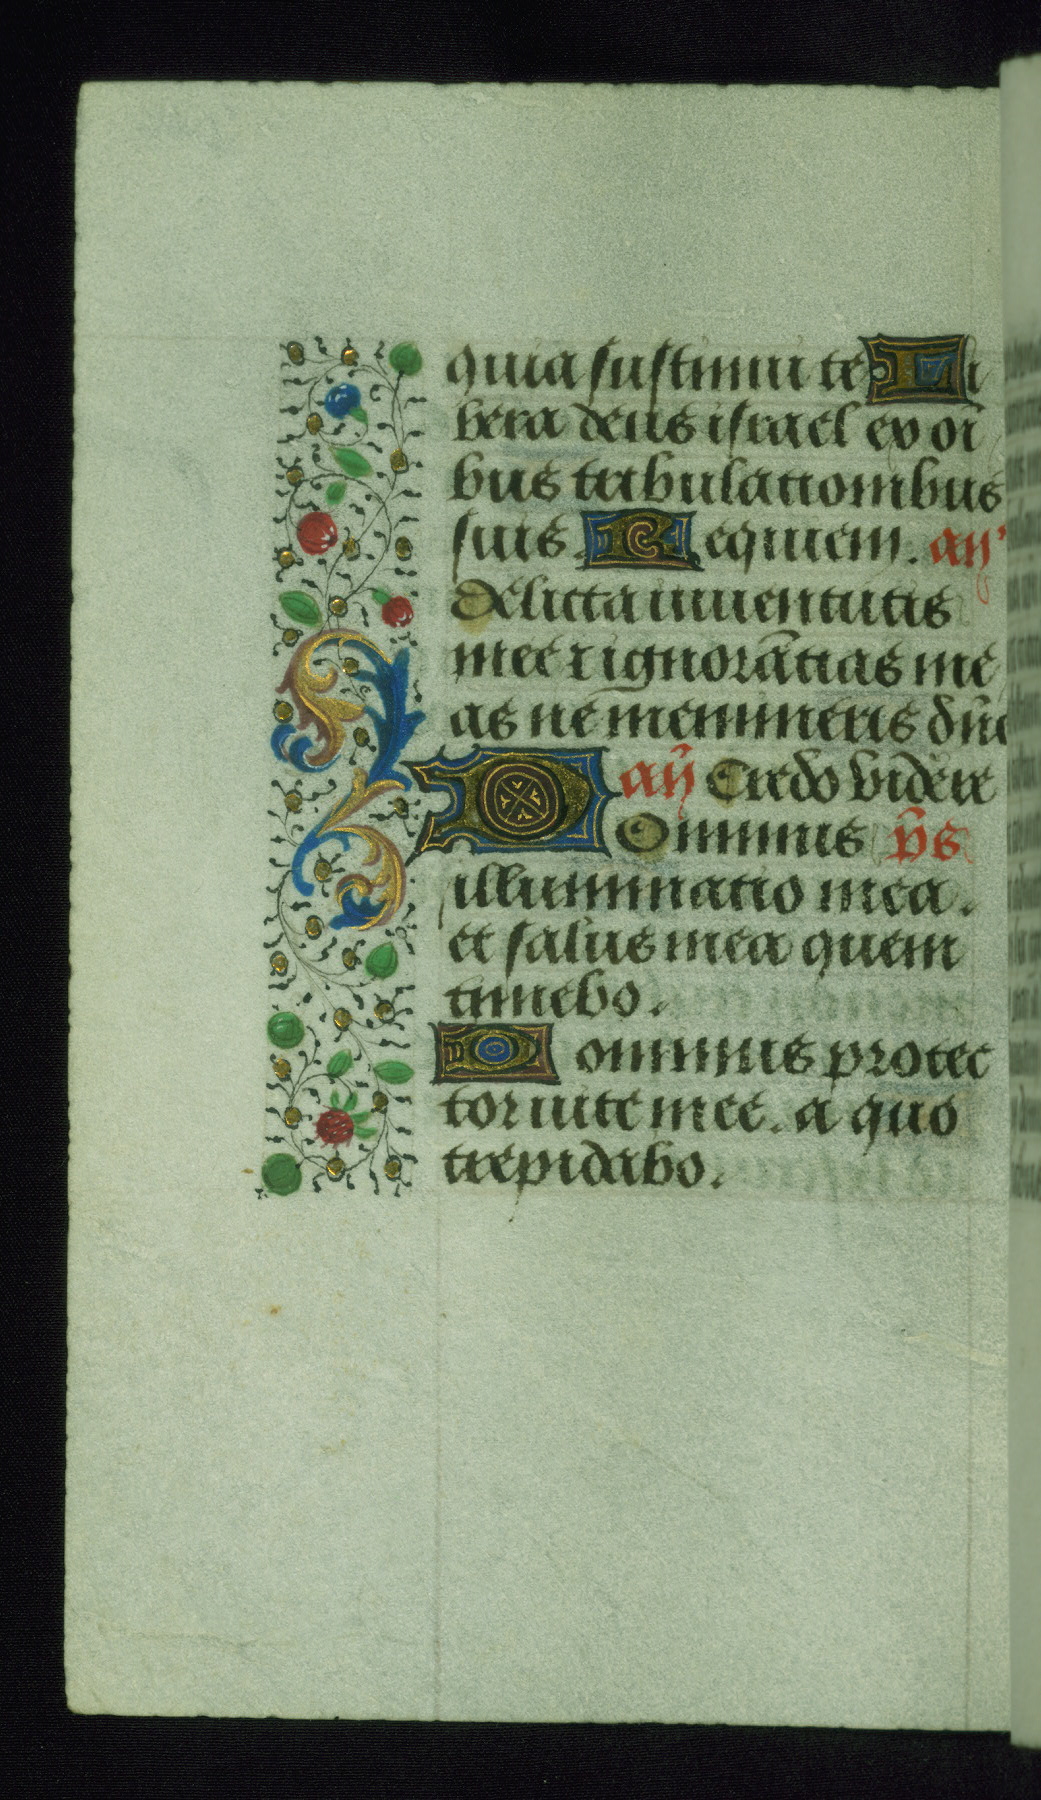 quia sustinui te Li
bera deus israel ex oi
bus tribulationibus
suis. Requiem. an̄
Delicta iuuentutis
mee et ignorātias me
as ne memineris dn̄e
an̄ Credo videre
Dominus p̄s
illuminatio mea.
et salus mea quem
timebo.
Dominus protec
tor uite mee. a quo
trepidabo.